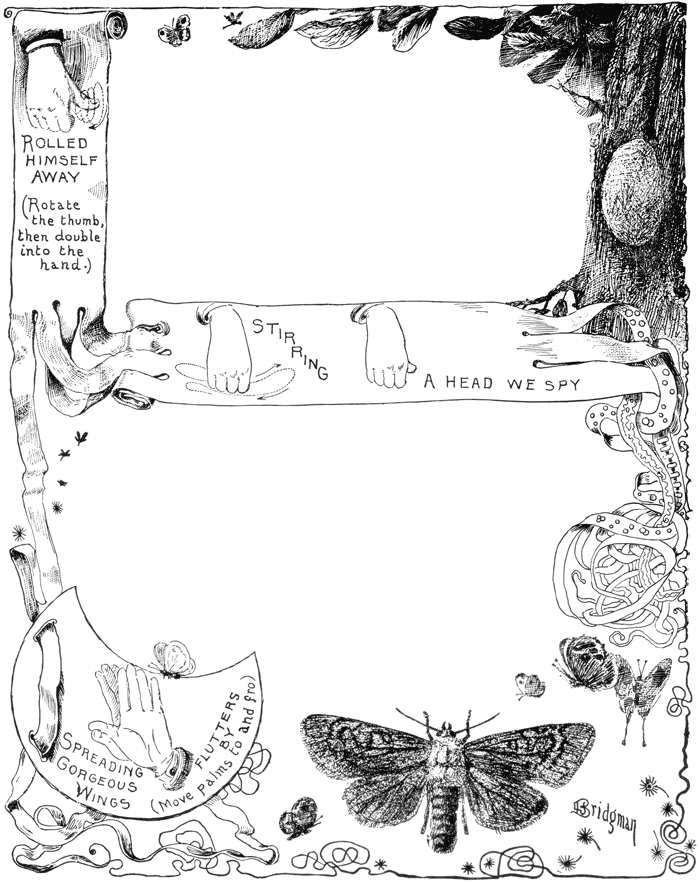 ROLLED
HIMSELF
AWAY
(Rotate
the thumb,
then double
into the
hand.)
STIRRING
A HEAD WE SPY
SPREADING
GORGEOUS
WINGS
FLUTTERS
BY
(Move palms to and fro)
Bridgman